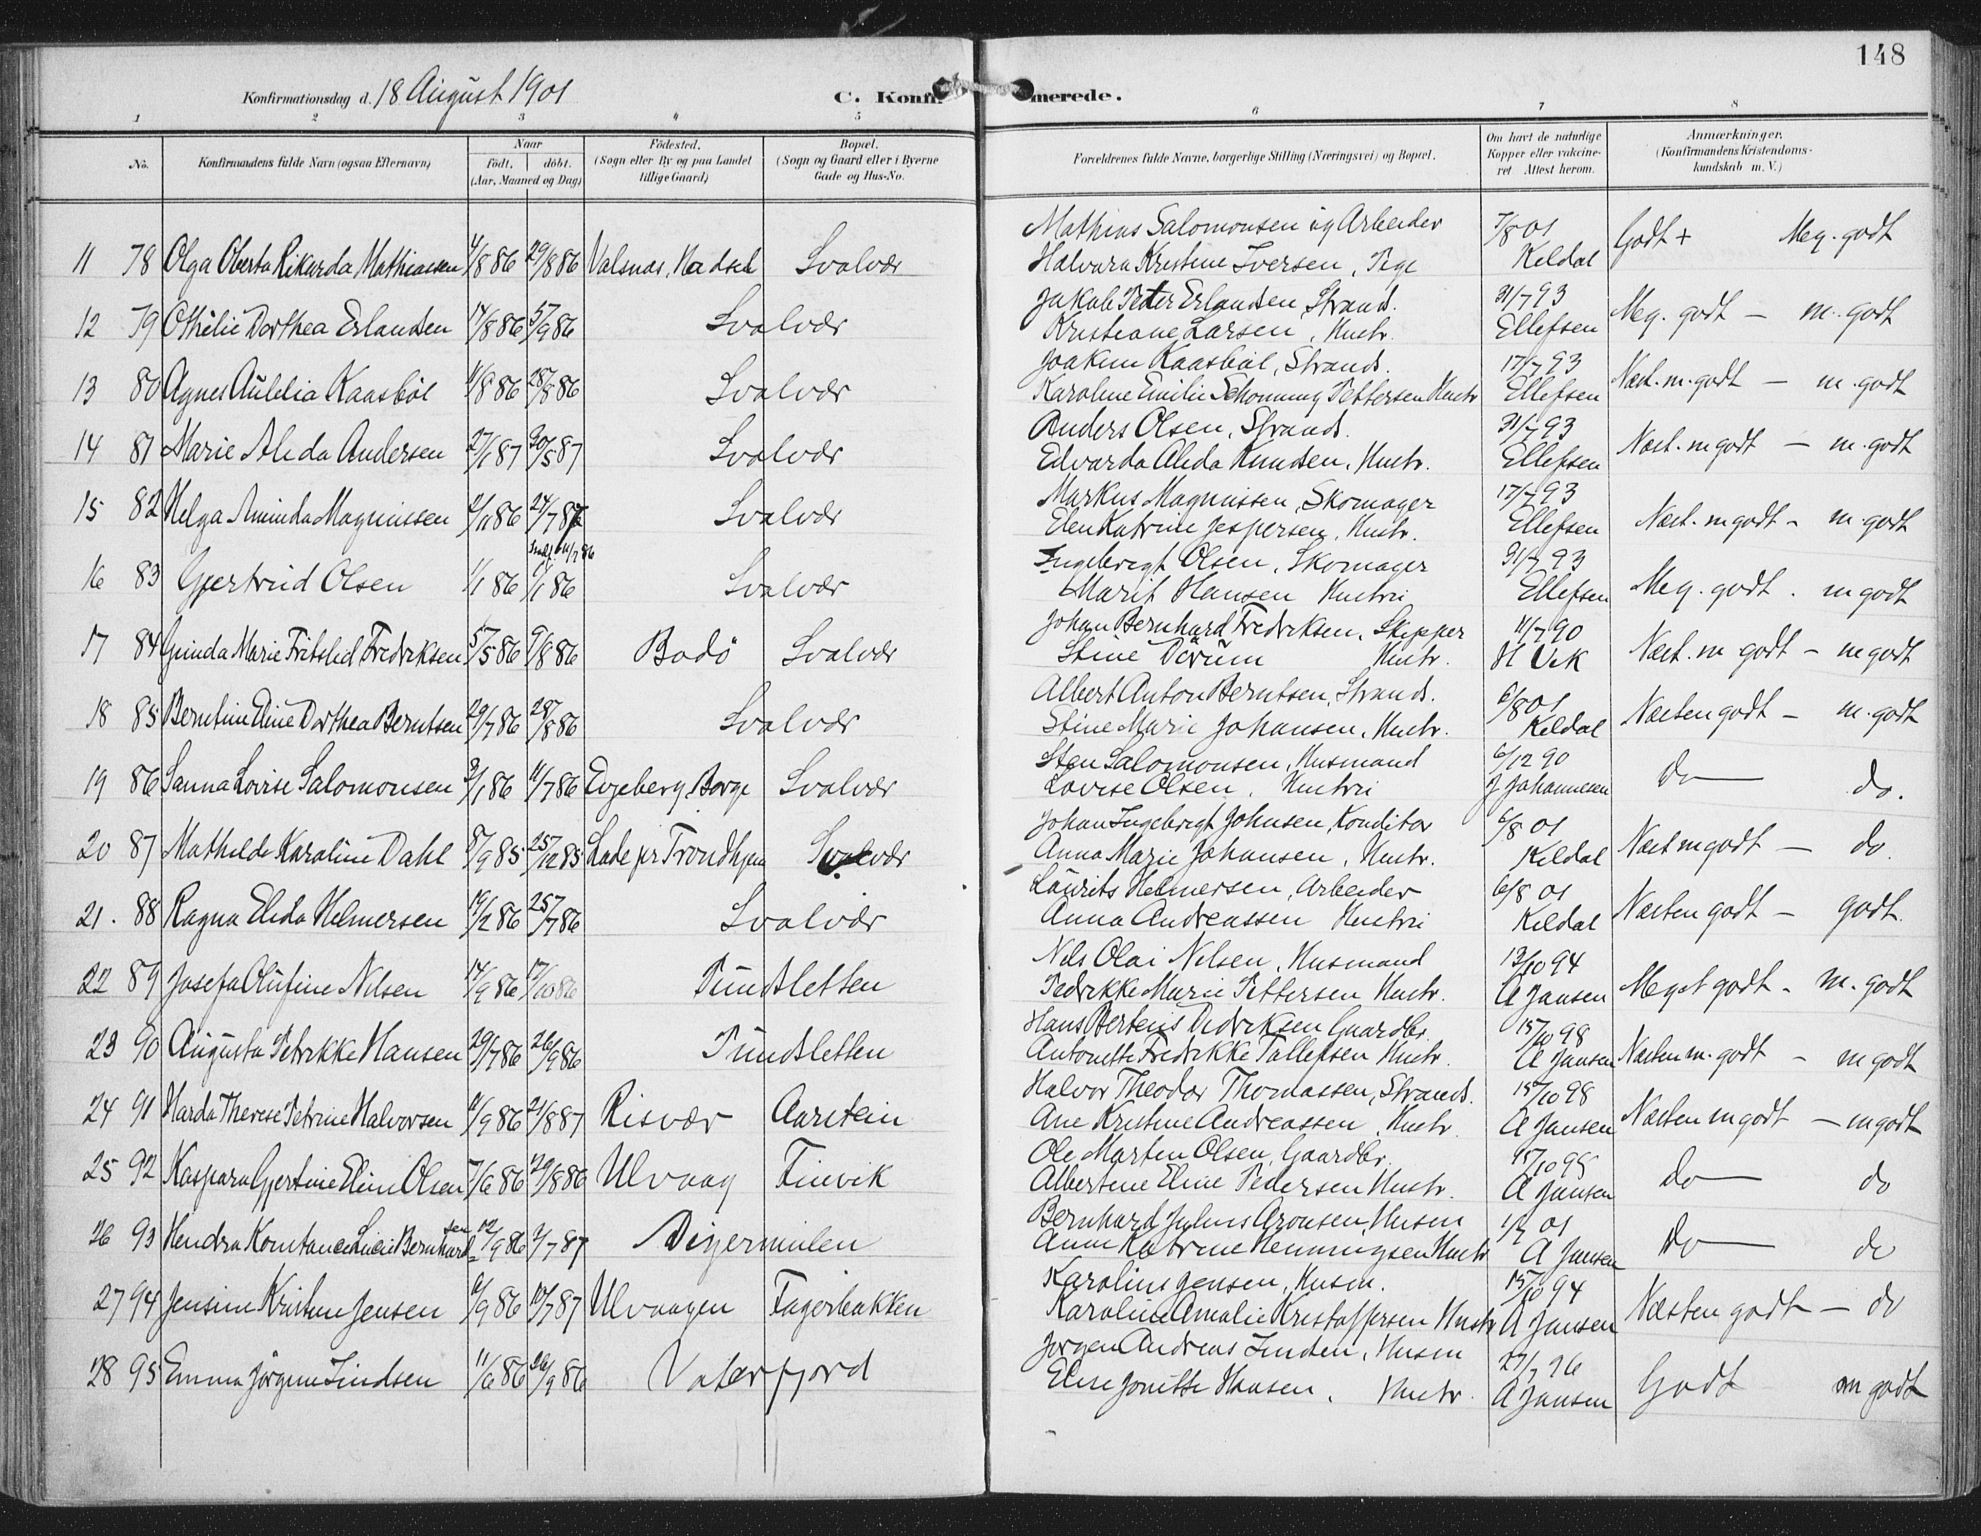 148
Konfirmationsdag d. 18 August 1901
C. Konfir merede.
1 2 3 4 5 6 7 8
No. Konfirmandens fulde Navn (ogsaa Efternavn) Naar født. døbt. (Aar, Maaned og Dag) Fødested. (Sogn eller By og paa Landet tillige Gaard) Bopæl. (Sogn og Gaard eller i Byerne Gade og Hus-No. Forældrenes fulde Navne, borgerlige Stilling (Næringsvei) og Bopæl. Om havt de naturlige Kopper eller vakcineret Attest herom. Anmærkninger. (Konfirmandens Kristendomskundskab m. V.)
Mathias Salomonsen ug Arbeider 7/8 01
11 78 Olga Oberta Rikarda Mathiassen 4/8 86 29/8 86 Valsnæs, Hadsel Svolvær Halvara Kristine Iversen, Pige Keldal Godt + Meg. godt
Jakob Peter Erlandsen, Strands. 31/7 93
12 79 Othelie Dorthea Erlandsen 14/8 86 5/9 86 Svolvær Kristiane Larsen, Hustr. Ellefsen Meg. godt — m. godt
Joakim Kaasbøl, Strands. 17/7 93
13 80 Agnes Aulelia Kaasbøl 11/8 86 28/8 86 Svolvær Karoline Emilie Schonning Pettersen Hustr Ellefsen Næst. m. godt — m. godt
Anders Olsen, Strands. 31/7 93
14 81 Marie Aleda Andersen 27/1 87 20/5 87 Svolvær Edvarda Aleda Knudsen, Hustr. Ellefsen Næst. m godt — m. godt
Markus Magnussen, Skomager 17/7 93
15 82 Helga Aminda Magnussen 2/11 86 24/7 87 Svolvær Elen Katrine Jespersen, Hustr. Ellefsen Næst. m godt - m. godt
Ingebrigt Olsen, Skomager 31/7 93
16 83 Gjertrud Olsen 1/1 86 1/1 86 Svolvær Marit Hansen Hustru Ellefsen Meg. godt. m godt
Johan Bernhard Fredriksen, Skipper 11/7 90
17 84 Gunda Marie Fredriksen 5/5 86 9/8 86 Bodø Svolvær Stine Hustr. Næst. m godt — m godt
Albert Anton Berntsen, Strands. 6/8 01
18 85 Berntine Eline Dorthea Berntsen 29/7 86 28/8 86 Svolvær Stine Marie Johansen, Hustr. Keldal Næsten godt — m. godt
Sten Salomonsen, Husmand 6/12 90
19 86 Sanna Lovise Salomonsen 3/1 86 11/7 86 Borge Svolvær Lovise Olsen, Hustru J Johannesen Do — do.
Johan Ingebrigt Johnsen, Konditor 6/8 01
20 87 Mathilde Karoline Dahl 8/9 85 25/12 85 Lade pr Trondhjem Svolvær Anna Marie Johansen, Hustr. Keldal Næst m godt — do.
Laurits Helmersen, Arbeider 6/8 01
21. 88 Ragna Elida Helmersen 19/2 86 25/7 86 Svolvær Anna Andreassen Hustru Keldal Næsten godt — godt.
Nils Olai Nilsen, Husmand 13/10 94
22 89 Josefa Olufine Nilsen 14/9 86 17/10 86 Pundsletten Pedrikke Marie Pettersen Hustr. A Jansen Meget godt. m. godt
Hans Bertens Didriksen Gaardbr. 15/10 98
23 90 Augusta Petrikke Hansen 29/7 86 26/9 86 Pundsletten Antonette Fredrikke Tollefsen Hustr. A Jansen Næsten m. godt — m godt
Halvor Theodor Thomassen, Strands. 15/10 98
24 91 Harda Therese Petrine Halvorsen 2/9 86 21/8 87 Risvær Aarstein Ane Kristine Andreassen, Hustr. A Jansen Næsten m godt — m godt
Ole Marten Olsen, Gaardbr. 15/10 95
25 92 Kaspara Gjertine Eline Olsen 7/6 86 29/8 86 Ulvaag Finvik Albertine Eline Pedersen Hustr. A Jansen Do — do
Bernhard Julius Aronsen, Husm 1/7 01
26 93 Hendra Konstance Lucie Bernhardsen 12/9 86 2/7 87 Digermulen Anne Katrine Henningsen Hustr A Jansen Do — do
Karolius Jensen, Husm. 15/10 94
27 94 Jensine Kristine Jensen 6/9 86 10/7 87 Ulvaagen Fagerbakken Karoline Amalie Kristoffersen Hustr A Jansen Næsten godt — do
Jørgen Andreas Lindsen, Husm 27/7 96
28 95 Emma Jørgine Lindsen 11/6 86 26/9 86 Vaterfjord Elise Jonette Hansen, Hustr. A Jansen Godt m godt